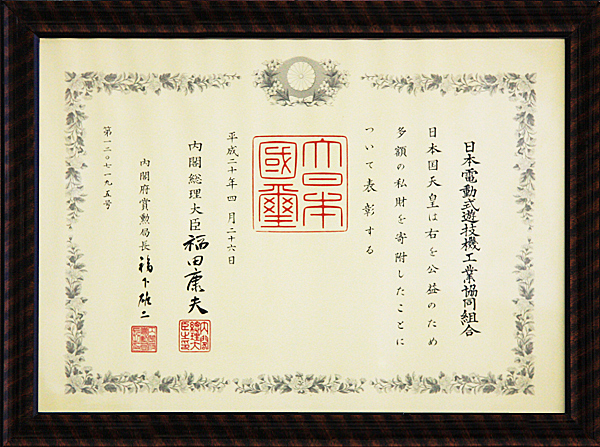 日本電動式遊技機工業協同組合
日本国天皇は右を公益のため
多額の私財を寄附したことに
ついて表彰する
大日本國璽
平成二十年四月二十六日
内閣総理大臣 福田康夫
内閣総理大臣之印
内閣府賞勲局長 福下雄二
第一二〇七一九五号